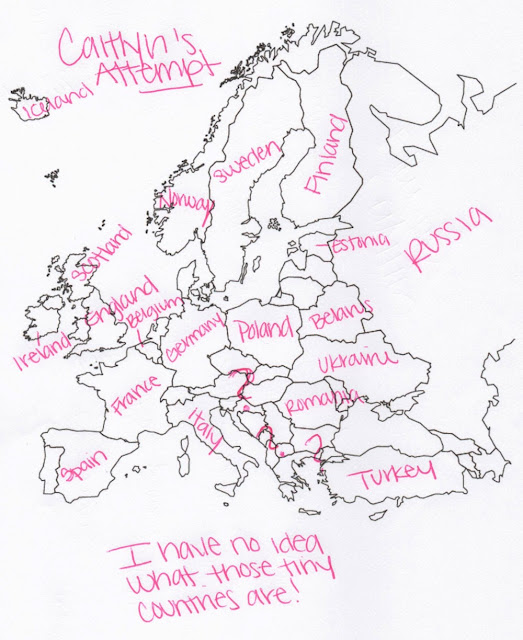 Caitlyn's
Attempt
Iceland
Finland
Sweden
Norway
Estonia
RUSSIA
Scotland
England
Belgium
Ireland
Germany
Poland
Belarus
Ukraine
France
?
Romania
Italy
?
?
Spain
Turkey
I have no idea
what those tiny
countries are!